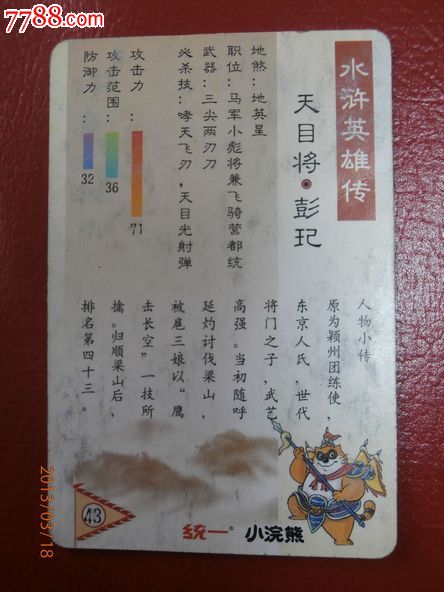 7788.com
水浒英雄传
天目将·彭玘
地煞：地英星
职位：马军小彪将兼飞骑营都统
武器：三尖两刃刀
必杀技：哮天飞刃，天目光射弹
攻击力：
71
攻击范围：
36
防御力：
32
人物小传
原为颖州团练使，
东京人氏，世代
将门之子，武艺
高强。当初随呼
延灼讨伐梁山，
被扈三娘以“鹰
击长空”一技所
擒。归顺梁山后，
排名第四十三。
43
统一® 小浣熊
2013/03/18